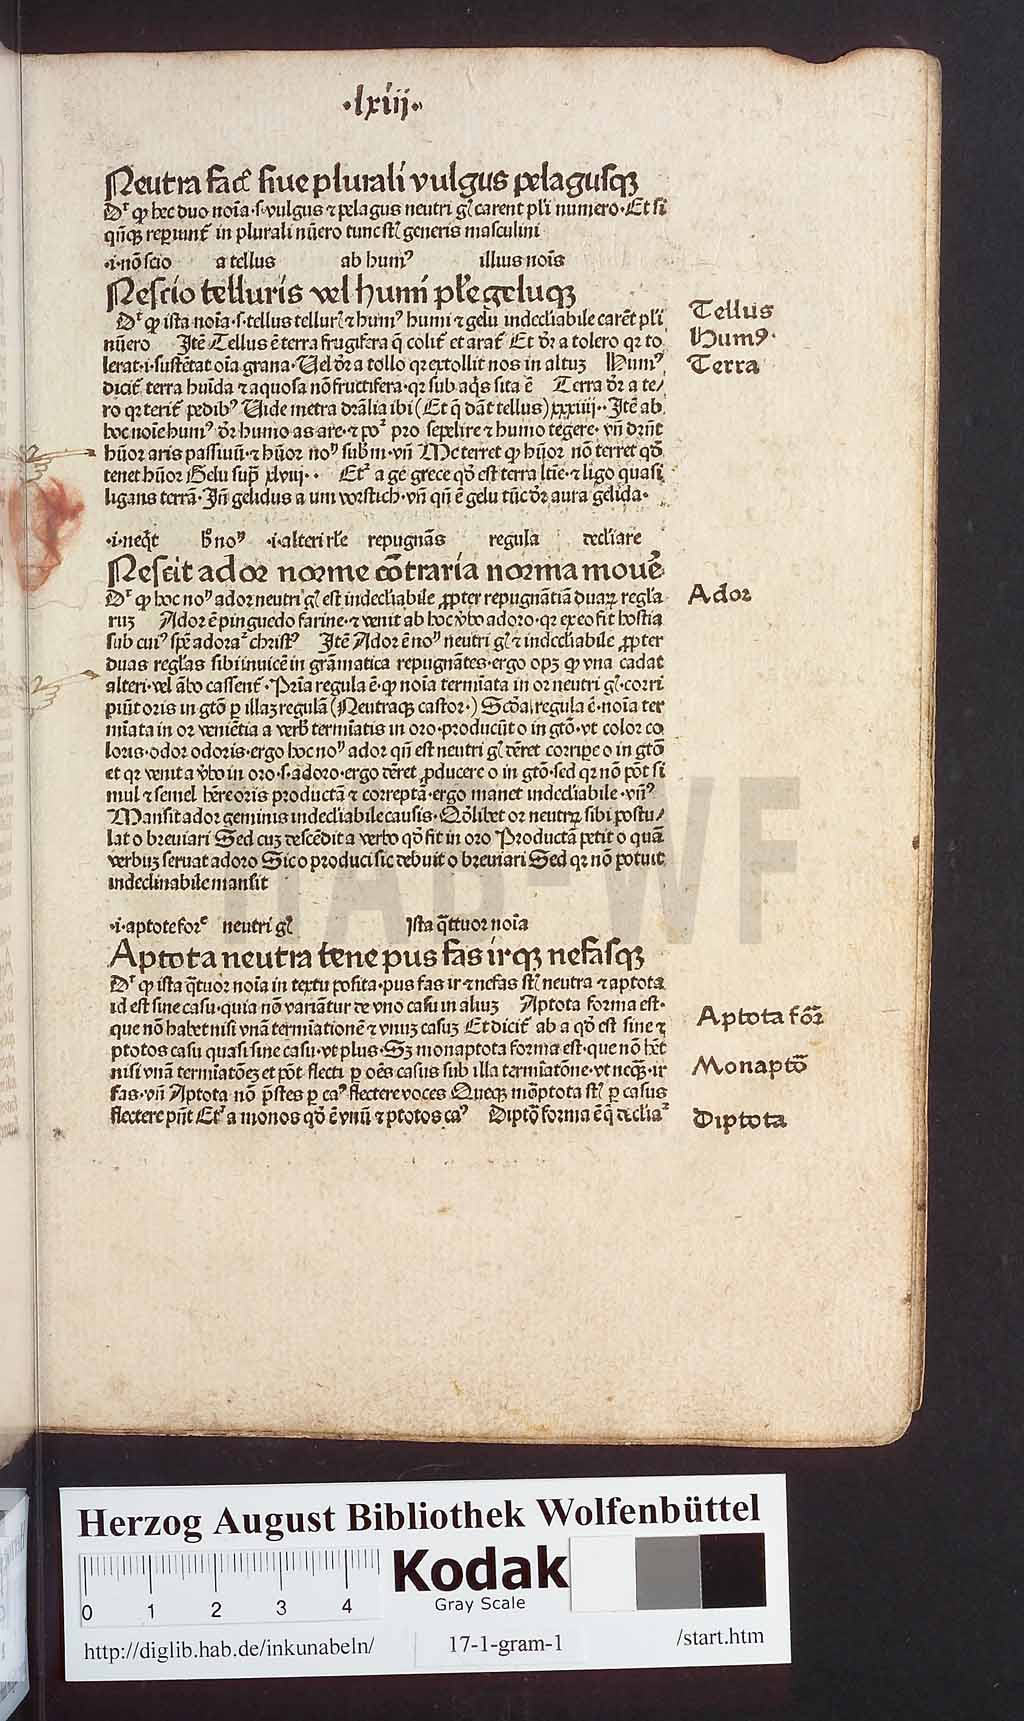 ·lxiij·
Neutra facͭ siue plurali vulgus pelagusqꝫ
Dʳ ꝙ hec duo noĩa·s·vulgus ⁊ pelagus neutri gͥ carent pl̃i numero·Et si
qñqꝫ reꝑiunt᷑ in plurali nũero tunc st̃ generis masculini
·i·nõ scio a tellus ab humꝰ illius noĩs
Nescio telluris vel humi pl̃e geluqꝫ
Dʳ ꝙ ista noĩa·s·tellus tellurꝭ ⁊ humꝰ humi ⁊ gelu indecliabile carẽt pl̃i
nũero Jtẽ Tellus ẽ terra frugifera q̃ colit᷑ et arat᷑ Et dr̃ a tolero qꝛ to
lerat·i·sustẽtat oĩa grana·Uel dr̃ a tollo qꝛ extollit nos in altuꝫ Humꝰ
dicit᷑ terra huĩda ⁊ aquosa nõ fructifera·qꝛ sub aq̃s sita ẽ Terra dr̃ a te/
ro qꝛ terit᷑ pedibꝰ Uide metra dr̃alia ibi (Et q̃ dãt tellus) xxxiiij··Jtẽ ab
hoc noĩe humꝰ dr̃ humo as are·⁊ poᷣ pro sepelire ⁊ humo tegere·vñ drñt
hũor aris passiuũ·⁊ hũor noᷣ subm·vñ Me terret ꝙ hũor nõ terret qᷣ
tenet hũor Gelu supᷓ xlviij·· Etʳ a ge grece qᷣ est terra ltĩe·⁊ ligo quasi
ligans terrã·Jñ gelidus a um vorstich·vñ qñ ẽ gelu tũc dr̃ aura gelida·
·i·neq̃t h̾ noᷣ ·i·alteri rl̃e repugnãs regula decliare
Nescit ador norme cõtraria norma mouẽ
Dʳ ꝙ hoc noᷣ ador neutri gͥ est indecliabile ꝓpter repugnãtiã duaꝝ regla
ruꝫ Ador ẽ pinguedo farine·⁊ venit ab hoc ṽbo adoro·qꝛ ex eo fit hostia
sub cuiꝰ spẽ adoraᷣ christꝰ Jtẽ Ador ẽ noᷣ neutri gͥ ⁊ indecliabile ꝓpter
duas regl̃as sibiinuicẽ in grãmatica repugnãtes·ergo opꝫ ꝙ vna cadat
alteri·vel ãbo cassent᷑·Pr̃ia regula ẽ·ꝙ noĩa termĩata in or neutri gͥ·corri
piũt oris in gtõ ꝑ illaꝫ regulã (Neutraqꝫ castor·) Scďa regula ẽ·noĩa ter
mĩata in or veniẽtia a verbꝭ termĩatis in oro·producũt o in gtõ·vt color co
loris·odor odoris·ergo hoc noᷣ ador qñ est neutri gͥ dẽret corriꝑe o in gtõ
et qꝛ venit a ṽbo in oro·s·adoro·ergo dẽret ꝓducere o in gtõ·sed qꝛ nõ põt si
mul ⁊ semel hẽre oris productã ⁊ correptã·ergo manet indecliabile·vñꝰ
Mansit ador geminis indecliabile causis·Qᷣlibet or neutrꝝ sibi postu/
lat o breuiari Sed cuꝫ descẽdit a verbo qᷣ fit in oro Productã petit o quã
verbuꝫ seruat adoro Sic o produci sic debuit o breuiari Sed qꝛ nõ potuit
indeclinabile mansit
·i·aptote forᷤ neutri gͥ Jsta q̃ttuor noĩa
Aptota neutra tene pus fas irqꝫ nefasqꝫ
Dʳ ꝙ ista q̃tuor noĩa in textu posita·pus fas ir ⁊ nefas st̃ neutra ⁊ aptota
id est sine casu·quia nõ variãtur de vno casu in aliuꝫ Aptota forma est·
que nõ habet nisi vnã termĩationẽ ⁊ vnuꝫ casuꝫ Et dicit᷑ ab a qᷣ est sine ⁊
ptotos casu quasi sine casu·vt plus·Sꝫ monaptota forma est·que nõ hẽt
nisi vnã termĩatõeꝫ et põt flecti ꝑ oẽs casus sub illa termĩatõne·vt neqꝫ·ir
fas·vñ Aptota nõ p̃stes ꝑ caꝰ flectere voces Queqꝫ mõptota st̃ ꝑ casus
flectere pñt Etʳ a monos qᷣ ẽ vnũ ⁊ ptotos caꝰ Diptõ forma ẽ q̃ decliaᷣ
Tellus
Humꝰ·
Terra
Ador
Aptota forᷓ
Monaptõ
Diptota
HAB-WF
Herzog August Bibliothek Wolfenbüttel
0 1 2 3 4
Kodak
Gray Scale
http://diglib.hab.de/inkunabeln/ 17-1-gram-1 /start.htm